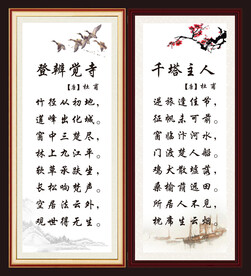 登辨觉寺
【唐】杜 甫
竹径从初地，
莲峰出化城。
窗中三楚尽，
林上九江平。
软草承趺坐，
长松响梵声。
空居法云外，
观世得无生。
千塔主人
【唐】杜 甫
逆旅逢佳节，
征帆未可前。
窗临汴河水，
门渡楚人船。
鸡犬散墟落，
桑榆荫远田。
所居人不见，
枕席生云烟。